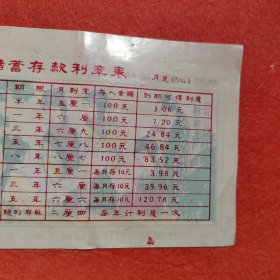 储蓄存款利率表
月息(‰)
期限 月利率 存入金额 到期可得利息
半年 五厘一 100元 3.06元
一年 六厘 100元 7.20元
三年 六厘九 100元 24.84元
五年 100元 46.84元
八年 100元 83.52元
一年 五厘一 每月存10元 3.98元
三年 六厘 每月存10元 39.96元
五年 六厘六 每月存10元 120.78元
随时存取 二厘四 每年计利息一次